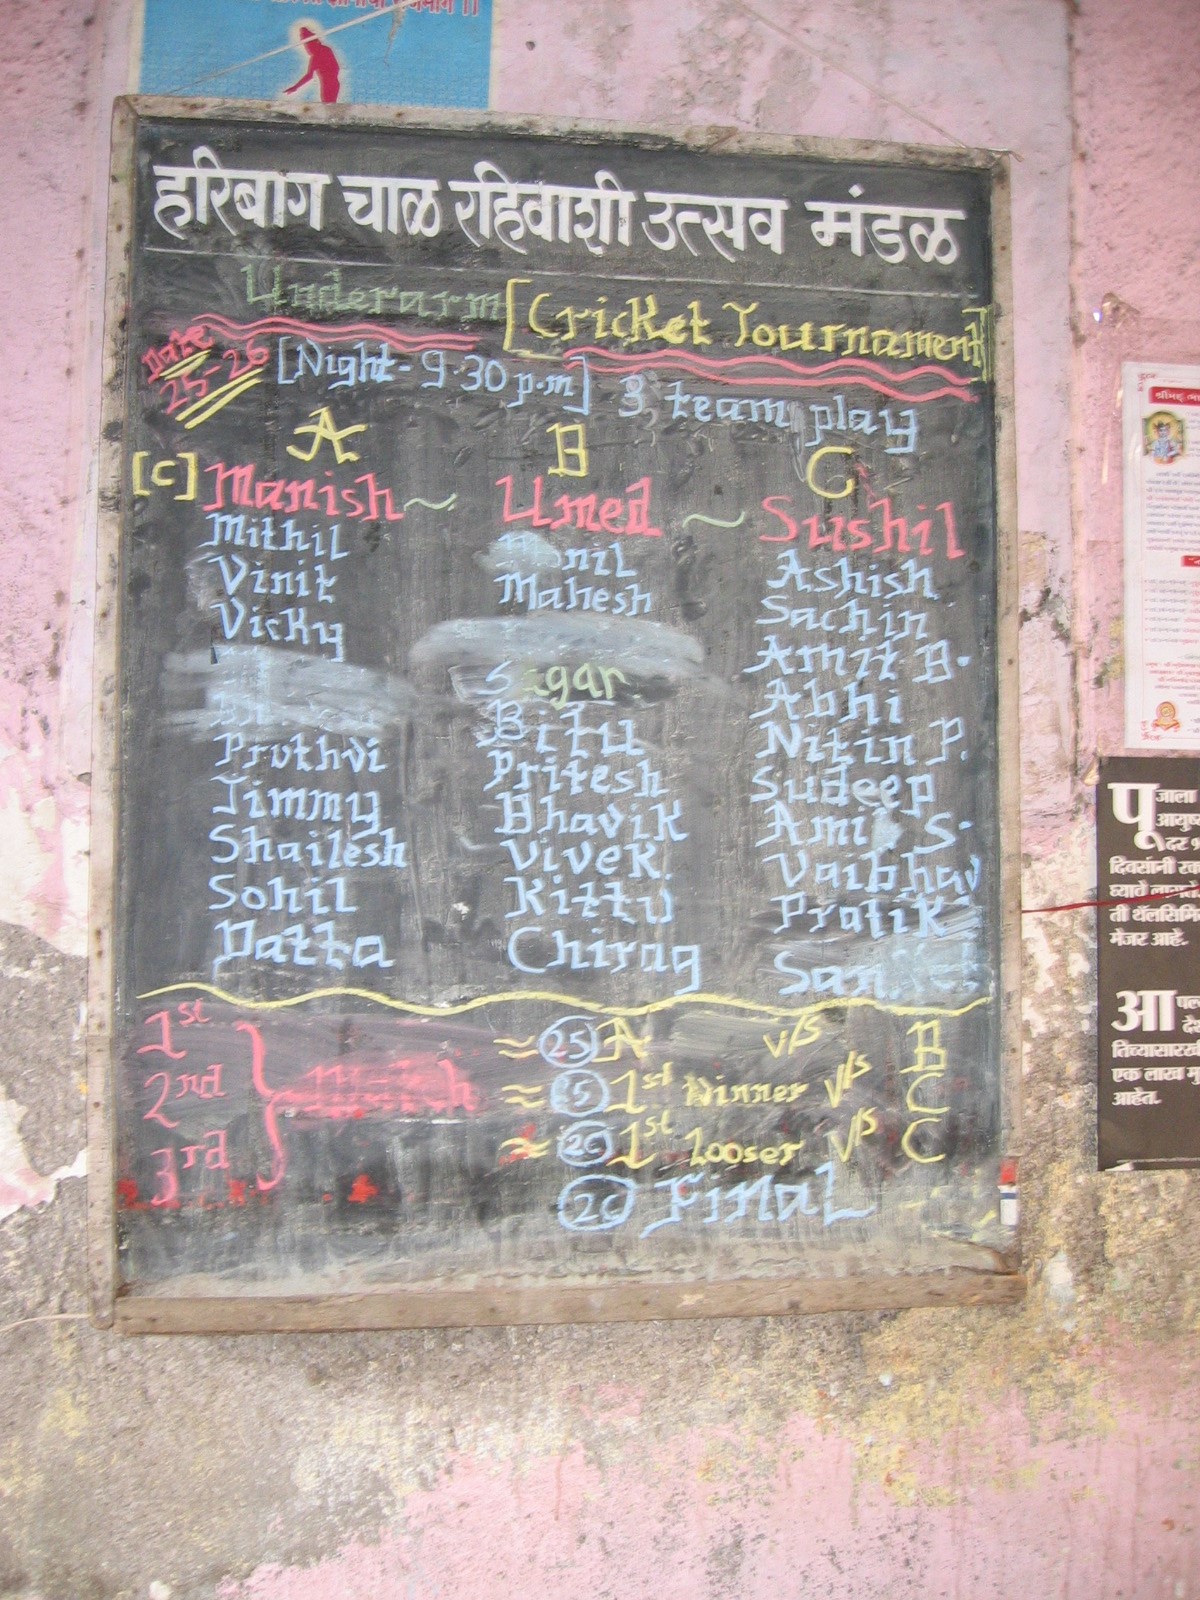 हरिबाग चाळ रहिवाशी उत्सव मंडळ
Underarm [Cricket Tournament]
Date 25-26 [Night - 9.30 p.m] 3 team play
A B C
[C] Manish ~ Umed ~ Sushil
Mithil nil Ashish
Vinit Mahesh Sachin
Vicky Amit B.
Sagar Abhi
Bitu Nitin P.
Pruthvi Pritesh Sudeep
Jimmy Bhavik Ami S.
Shailesh Vivek Vaibhav
Sohil Kittu Pratik
Datta Chirag Sanket
1st ≈ 25 A v/s B
2nd } Match ≈ 25 1st Winner v/s C
3rd ≈ 26 1st Looser v/s C
26 Final
पू जाला
आयुष्
दर १
दिवसांनी रक्
घ्यावे लागते
ती थॅलसिमि
मेजर आहे.
आ पल
देश
तिच्यासारखी
एक लाख मु
आहेत.